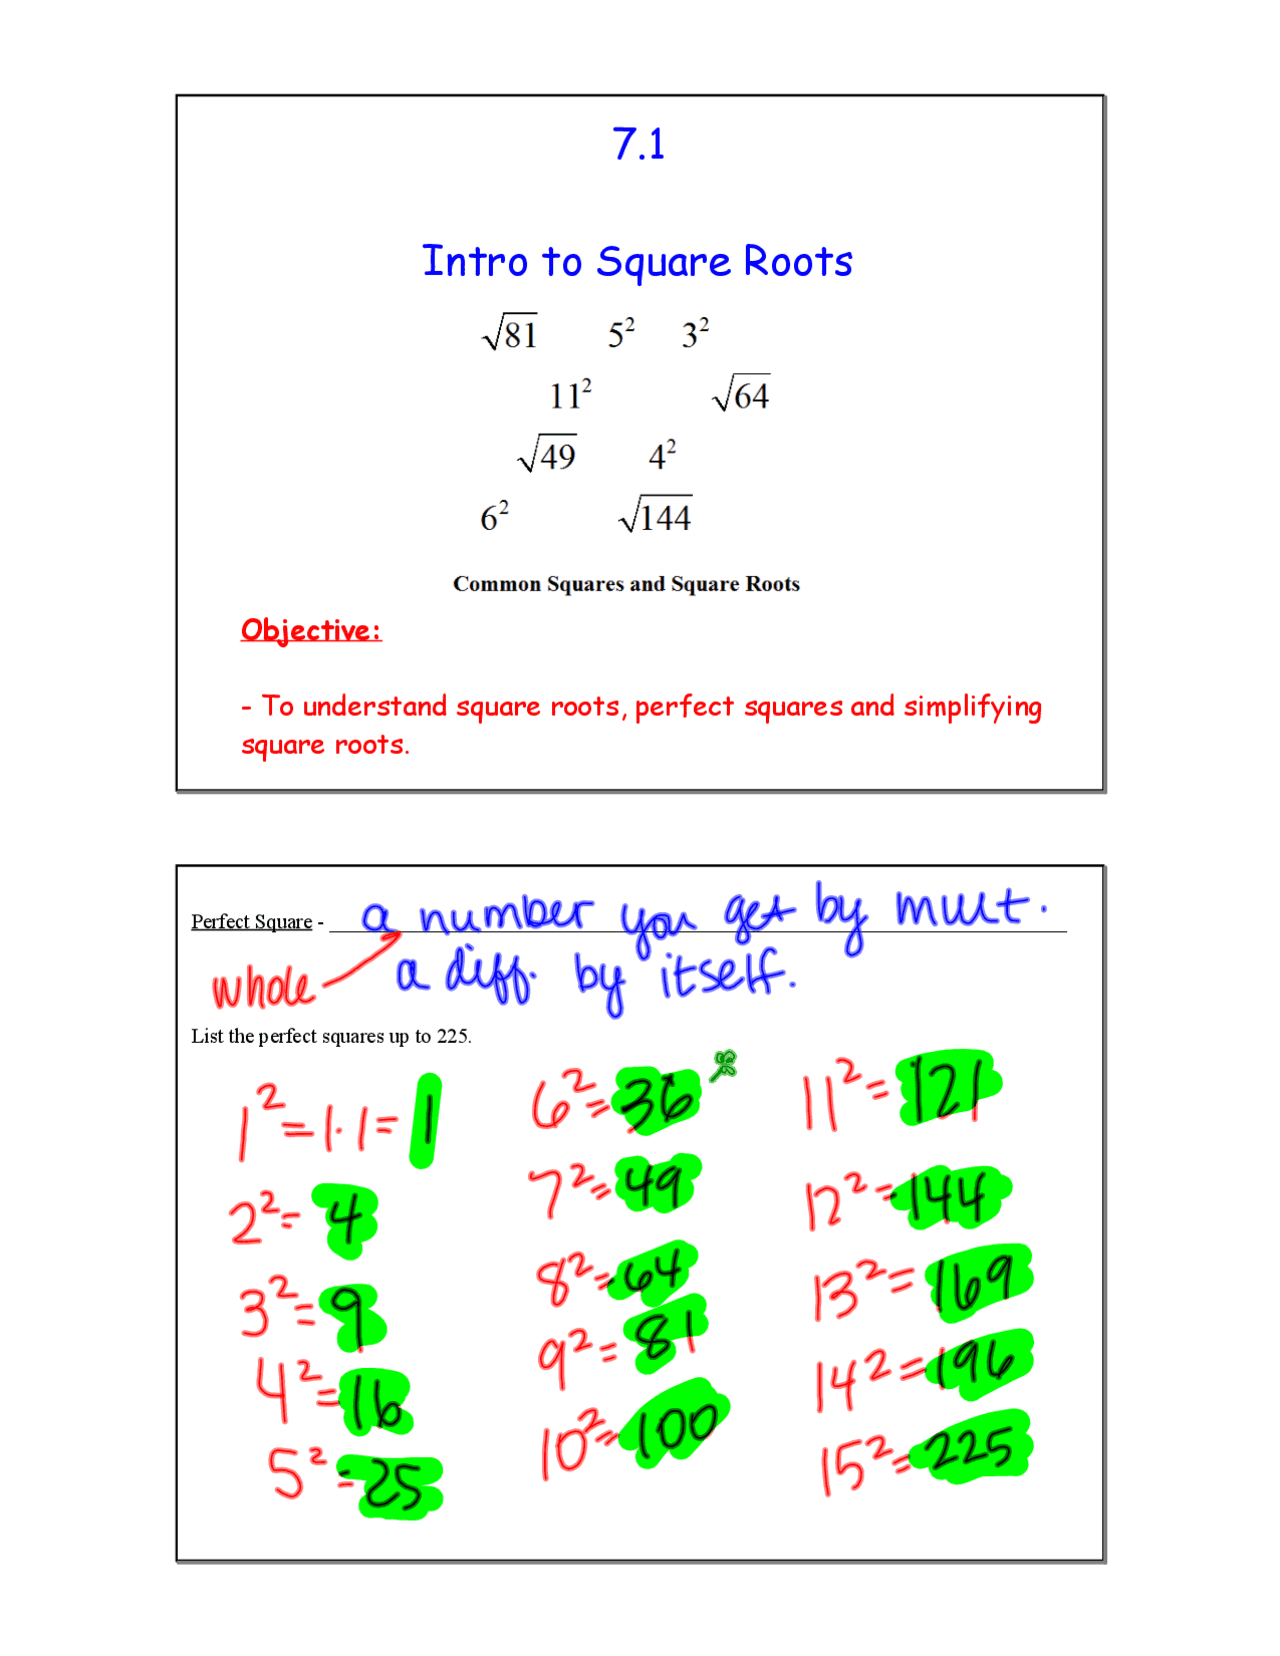 7.1
Intro to Square Roots
√81 5² 3²
11² √64
√49 4²
6² √144
Common Squares and Square Roots
Objective:
- To understand square roots, perfect squares and simplifying
square roots.
Perfect Square - a number you get by mult.
whole a diff. by itself.
List the perfect squares up to 225.
1² = 1·1 = 1
2² = 4
3² = 9
4² = 16
5² = 25
6² = 36
7² = 49
8² = 64
9² = 81
10² = 100
11² = 121
12² = 144
13² = 169
14² = 196
15² = 225